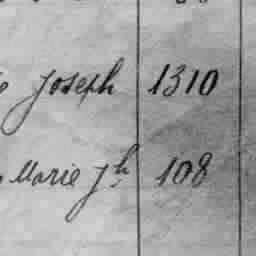 Joseph 1310
Marie Jh 108